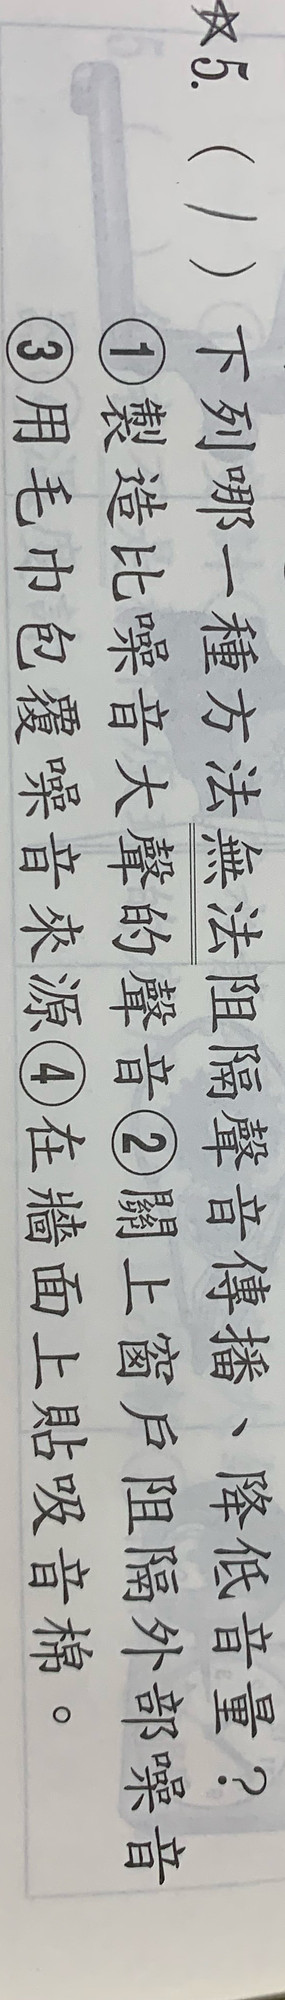 ☆5.（1）下列哪一種方法無法阻隔聲音傳播、降低音量？
①製造比噪音大聲的聲音②關上窗戶阻隔外部噪音
③用毛巾包覆噪音來源④在牆面上貼吸音棉。